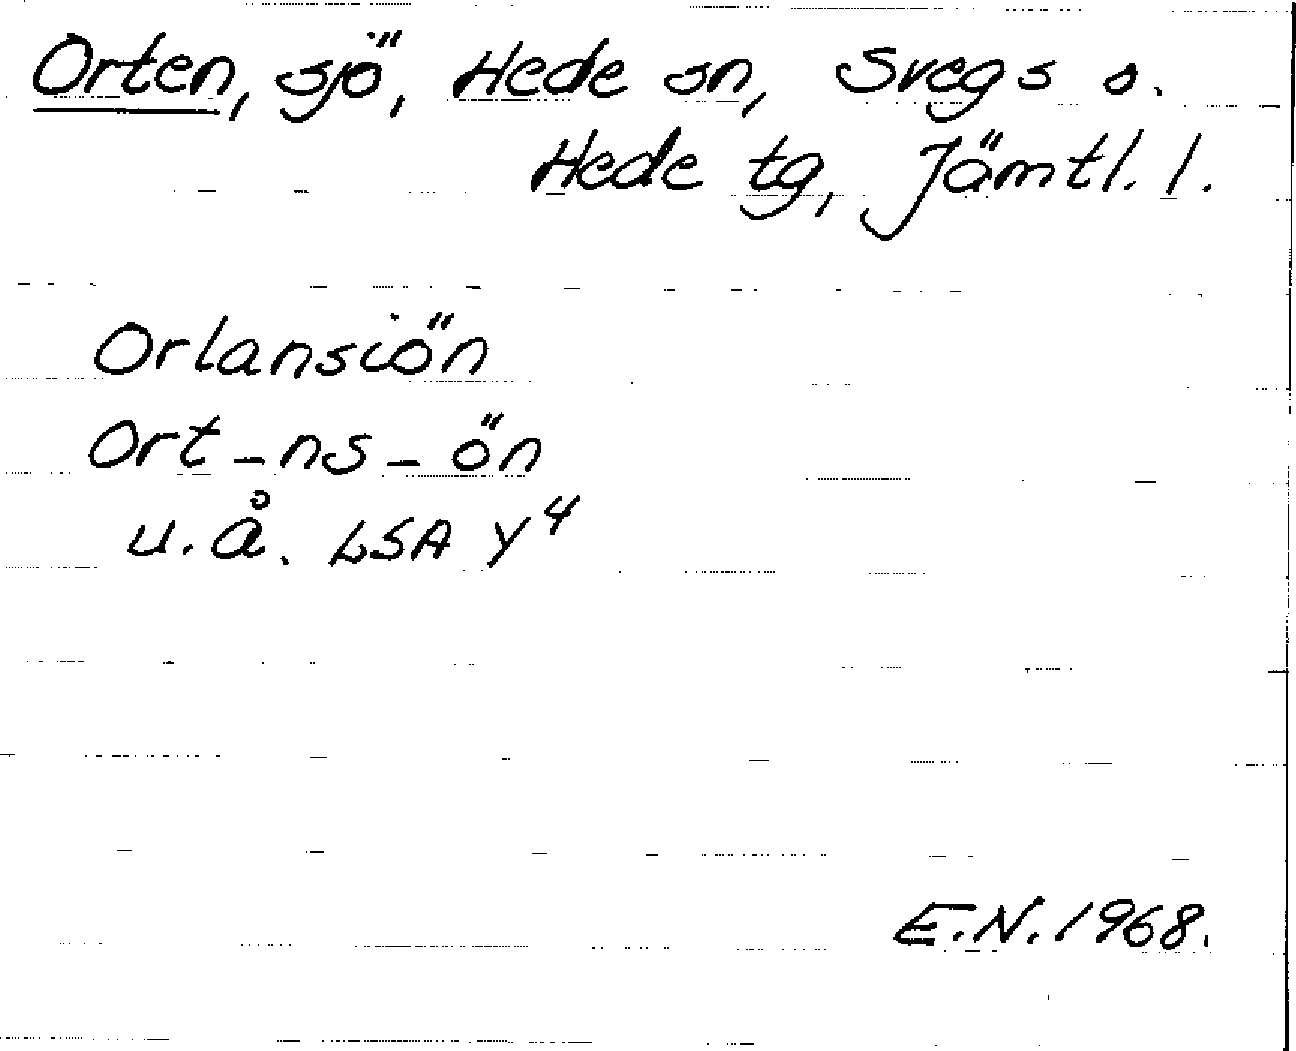 Orten, sjö, Hede sn, Svegs s.
Hede tg, Jämtl. l.
Orlansiön
Ort-ns-ön
u.å. LSA Y⁴
E.N. 1968.